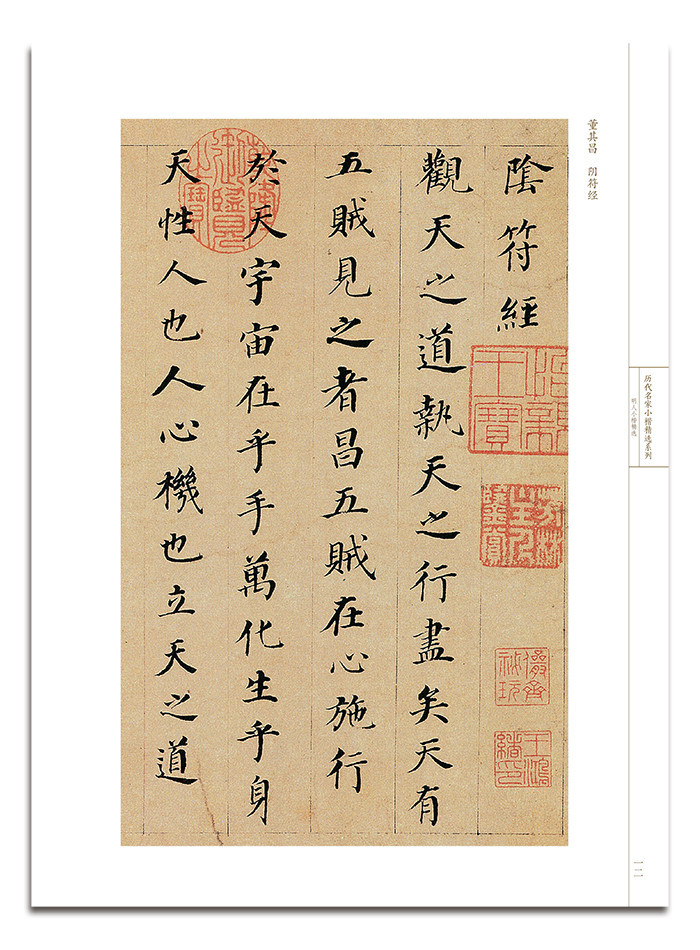 董其昌 阴符经
历代名家小楷精选系列
明人小楷精选
陰符經
觀天之道執天之行盡矣天有
五賊見之者昌五賊在心施行
於天宇宙在乎手萬化生乎身
天性人也人心機也立天之道
怡親王寶
儼齋祕玩
王鴻緒印
一二